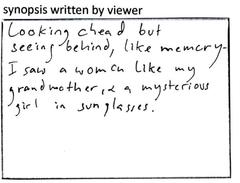 synopsis written by viewer
Looking ahead but
seeing behind, like memory.
I saw a woman like my
grandmother, & a mysterious
girl in sunglasses.